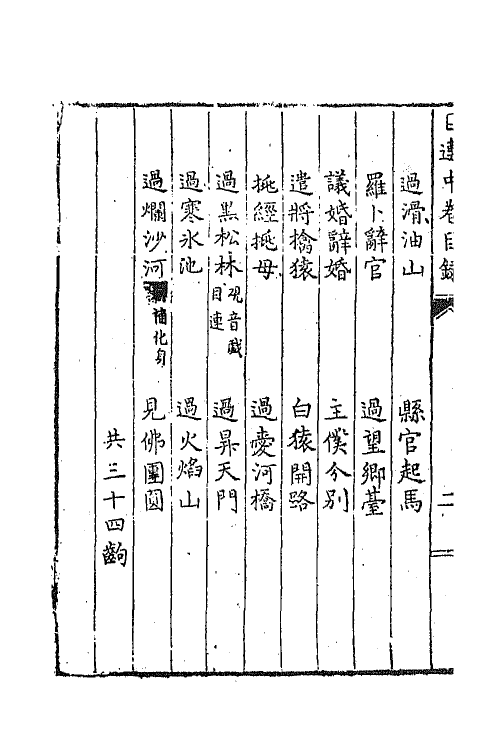 目連中卷目錄 二
過滑油山 縣官起馬
羅卜辭官 過望鄉臺
議婚辭婚 主僕分別
遣將擒猿 白猿開路
挑經挑母 過愛河橋
過黑松林 观音戲目連 過昇天門
過寒氷池 過火焰山
過爛沙河 補化身 見佛團圓
共三十四齣